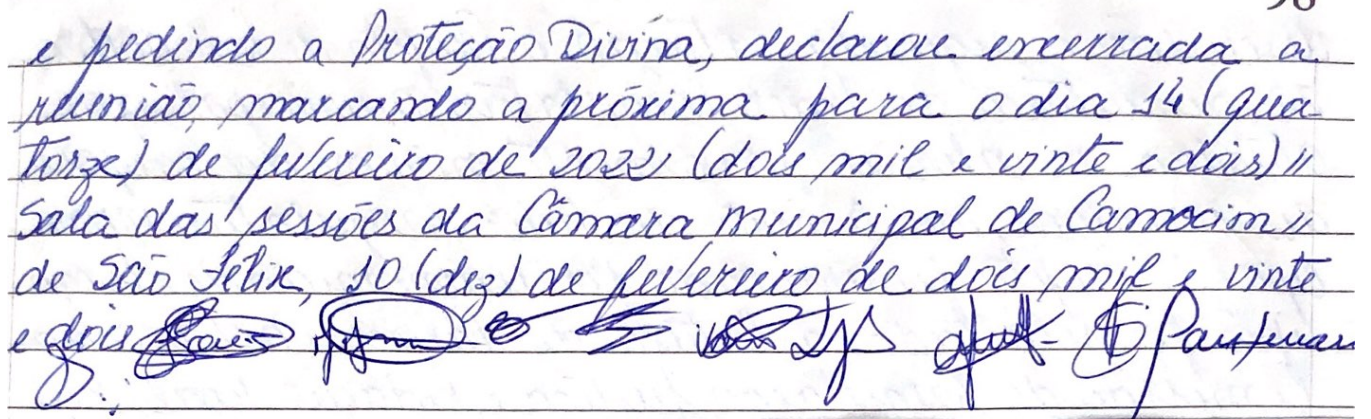 e pedindo a Proteção Divina, declarou encerrada a
reunião, marcando a próxima para o dia 14 (qua-
torze) de fevereiro de 2022 (dois mil e vinte e dois) //
Sala das sessões da Câmara Municipal de Camocim //
de São Felix, 10 (dez) de fevereiro de dois mil e vinte
e dois